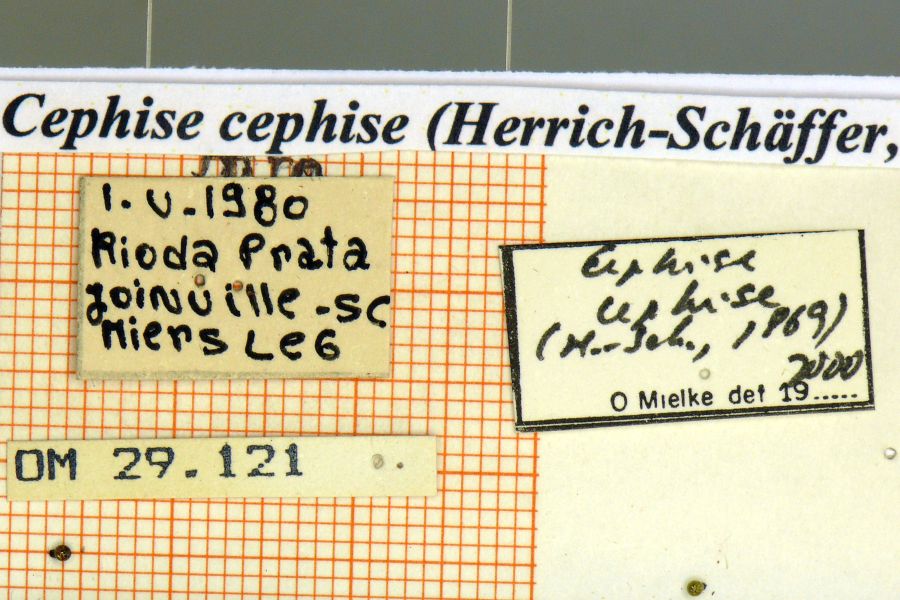 Cephise cephise (Herrich-Schäffer,
1.V-1980
Rio da Prata
Joinville-SC
Miers Leg
Cephise
cephise
(H.-Sch., 1869)
2000
O Mielke det 19.....
OM 29.121